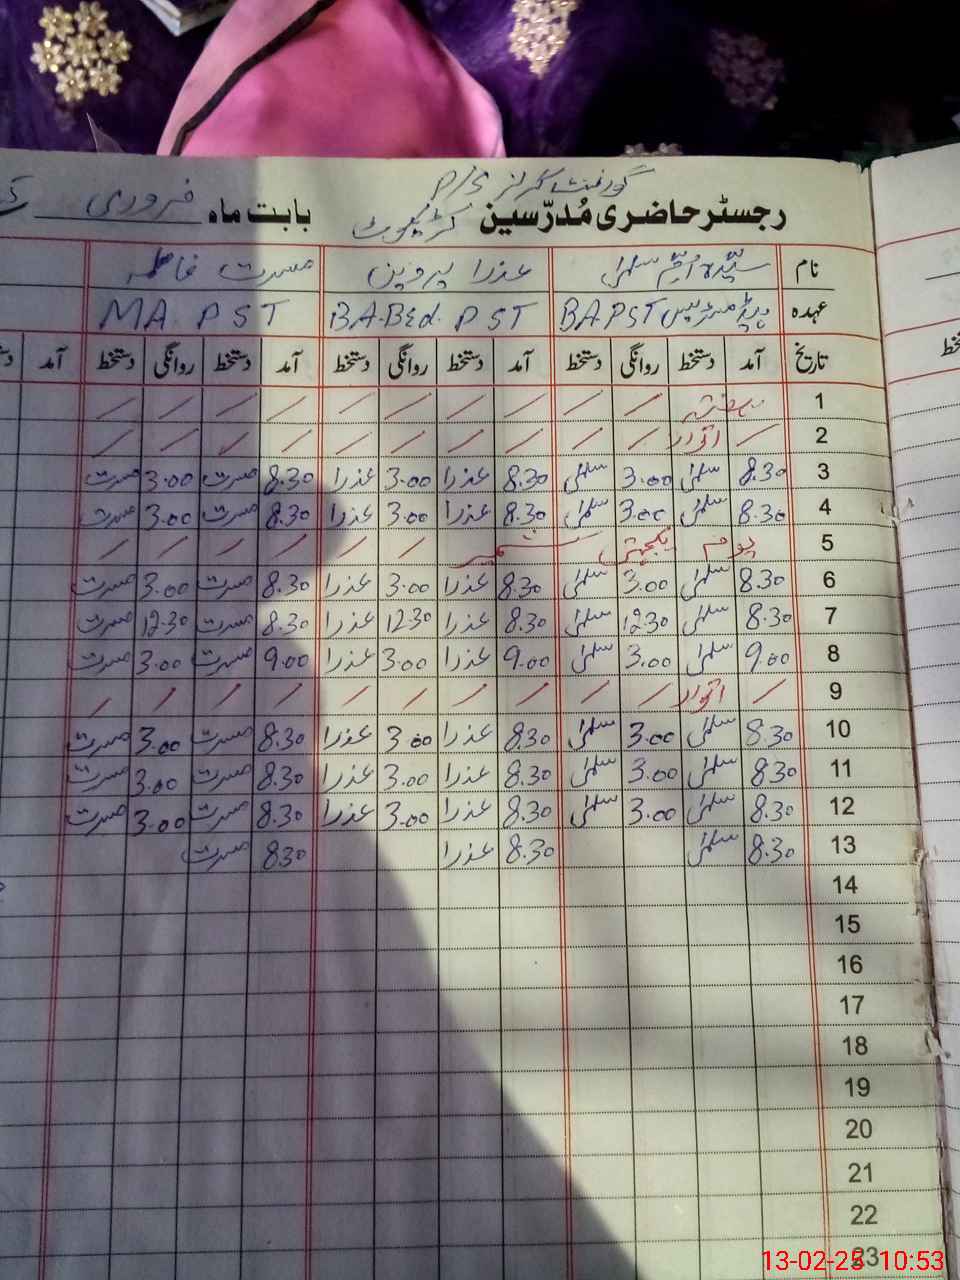 گورنمنٹ گرلز P/S
رجسٹر حاضری مُدرّسین
بابت ماہ فروری
نام سیدہ ام سلمیٰ عذرا پروین مسرت فاطمہ
عہدہ ہیڈ مسٹریس BA PST BA.BEd. PST MA PST
تاریخ آمد دستخط روانگی دستخط آمد دستخط روانگی دستخط آمد دستخط روانگی دستخط آمد
1 ہفتہ
2 اتوار
3 8.30 سلمیٰ 3.00 سلمیٰ 8.30 عذرا 3.00 عذرا 8.30 مسرت 3.00 مسرت
4 8.30 سلمیٰ 3.00 سلمیٰ 8.30 عذرا 3.00 عذرا 8.30 مسرت 3.00 مسرت
5 یوم یکجہتی کشمیر
6 8.30 سلمیٰ 3.00 سلمیٰ 8.30 عذرا 3.00 عذرا 8.30 مسرت 3.00 مسرت
7 8.30 سلمیٰ 12.30 سلمیٰ 8.30 عذرا 12.30 عذرا 8.30 مسرت 12.30 مسرت
8 9.00 سلمیٰ 3.00 سلمیٰ 9.00 عذرا 3.00 عذرا 9.00 مسرت 3.00 مسرت
9 اتوار
10 8.30 سلمیٰ 3.00 سلمیٰ 8.30 عذرا 3.00 عذرا 8.30 مسرت 3.00 مسرت
11 8.30 سلمیٰ 3.00 سلمیٰ 8.30 عذرا 3.00 عذرا 8.30 مسرت 3.00 مسرت
12 8.30 سلمیٰ 3.00 سلمیٰ 8.30 عذرا 3.00 عذرا 8.30 مسرت 3.00 مسرت
13 8.30 سلمیٰ 8.30 عذرا 8.30 مسرت
14
15
16
17
18
19
20
21
22
23
13-02-25 10:53